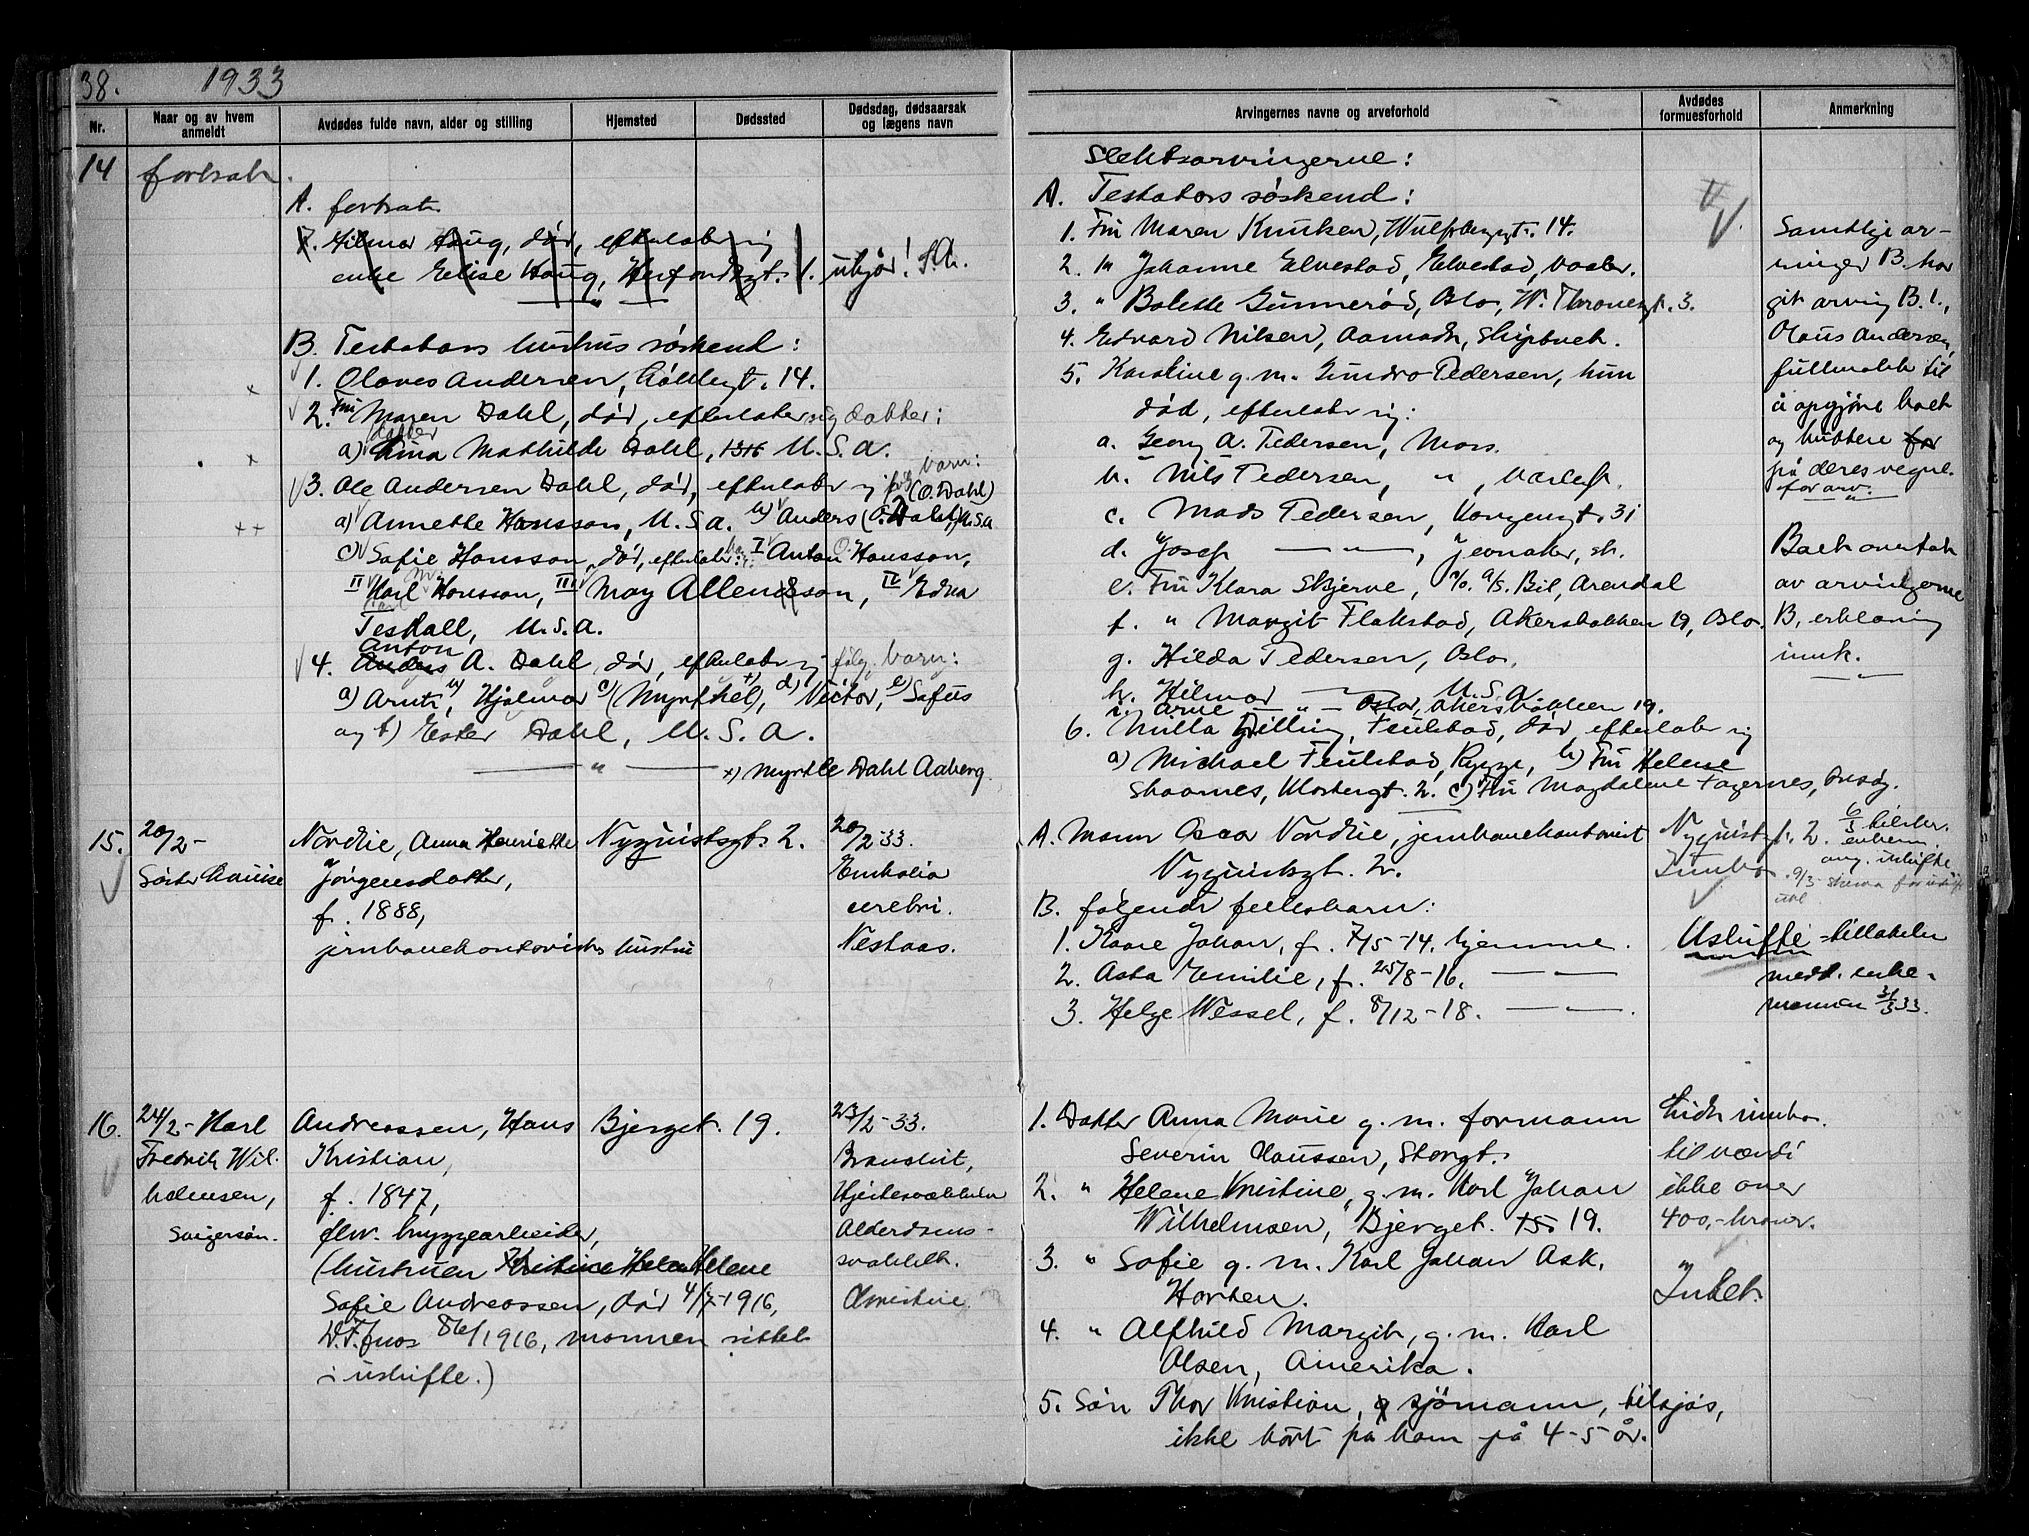 38. 1933
Nr.
Naar og av hvem anmeldt
Avdødes fulde navn, alder og stilling
Hjemsted
Dødssted
Dødsdag, dødsaarsak og lægens navn
14 fortsat.
A. fortsat.
7. Hilmar Haug, død, efterlater sig
enke Elise Haug, Herfordsgt. 1. utgjør!
B. Testators hustrus søskend:
1. Olaves Andersen, 14.
2. Fru Maren Dahl, død, efterlater sig datter:
a) Lina Mathilde Dahl, U.S.A.
3. Ole Andersen Dahl, død, efterlater sig følg. barn: (O. Dahl)
a) Annette Hansson, U.S.A. b) Anders (O. Dahl), U.S.A
c) Sofie Hansson, død, efterlater: I Anton O. Hansson,
II Karl Hansson, III May Allenson, IV Edna
Teskall, U.S.A.
Anton
4. Anders A. Dahl, død, efterlater sig følg. barn:
a) Arnt, b) Hjalmar c) (Myrthel), +) d) Victor, e) Sofus
og f) Ester Dahl, U.S.A.
— " — +) Myrtle Dahl Aaberg.
15. 20/2- Nordlie, Anna Henriette Nyquistsgt. 2. 20/2-33.
Søster Louise Jørgensdatter, Embolia
f. 1888, cerebri.
jernbanekontorists hustru Nestaas.
16. 24/2- Karl Andreassen, Hans Bjerget. 19. 23/2-33.
Fredrik Wil- Kristian, Bronchit,
helmsen, f. 1847, Hjertesvækkelse
svigersøn. fhv. bryggearbeider, Alderdoms-
(hustruen Kristine Helen Helene svakhet.
Sofie Andreassen, død 4/7-1916, Christie
1916, mannen sittet
i uskifte.)
Arvingernes navne og arveforhold
Avdødes formuesforhold
Anmerkning
Slektsarvingerne:
A. Testators søskend:
1. Fru Maren Knutsen, Wulfsbergsgt. 14.
2. " Johanne Elvestad, Elvestad, Vaaler.
3. " Bolette Gunnerød, Oslo, W. Thranesgt. 3.
4. Edvard Nilsen, Aamodt, Skiptvet.
5. Karoline g.m. Gundro Pedersen, hun
død, efterlater sig:
a. Georg A. Pedersen, Moss.
b. Nils Pedersen, " , Varleji.
c. Mads Pedersen, Kongensgt. 31
d. Josef — " —, Jevnaker, st.
e. Fru Klara Skjerve, c/o. A/S. Bil, Arendal
f. " Margit Flakstad, Akersbakken 19, Oslo.
g. Hilda Pedersen, Oslo.
h. Hilmar — " — U.S.A.
i. Arne — " — Oslo, Akersbakken 19.
6. Milla Dilling, Feulstad, død, efterlater sig
a) Michael Feulstad, Rygge, b) Fru Helene
Skaarnes, Klostergt. 2. c) Fru Magdalene Fagernes, Onsøy.
Samtlige ar-
vinger B. har
git arving B. 1,
Olaus Andersen,
fullmakt til
å opgjøre boet
og kvittere for
på deres vegne.
for arv.
— " —
Boet overtatt
av arvingerne
B, erklæring
innk.
— " —
A. Mann Oscar Nordlie, jernbanekontorist
Nyquistsgt. 2.
B. følgende fellesbarn:
1. Kaare Johan, f. 7/5-14. hjemme.
2. Asta Emilie, f. 25/8-16. — " —
3. Helge Wessel, f. 8/12-18. — " —
Nyquistgt. 2.
Innbo
6/3 tilskr.
enkem.
ang. uskifte
9/3 skema for uskifte
utl
Uskifte-tillatelse
medd. enke-
mannen 31/3 33.
1. Datter Anna Marie g.m. formann
Severin Claussen, Storgt.
2. " Helene Kristine, g.m. Karl Johan
Wilhelmsen, Bjerget. 19.
3. " Sofie g.m. Karl Johan Ask.
Horten.
4. " Alfhild Margit, g.m. Karl
Olsen, Amerika.
5. Søn Thor Kristian, sjömann, tilsjøs,
ikke hørt fra ham på 4-5 år.
Litt innbo.
til værdi
ikke over
400,- kroner.
Intet.